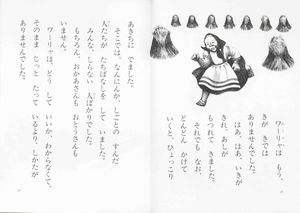 ワーリャは もう、
きが きでは
ありませんでした。
はあ、はあ、いきが
きれ、あしが
もつれて きました。
それでも なお、
どんどん かけて
いくと、ひょっこり
あきちに でました。
そこでは、なんにんか、しごとの すんだ
人たちが たちばなしを して いました。
みんな、しらない 人ばかりでした。
もちろん、おかあさんも おとうさんも
いません。
ワーリャは、どう して いいか、わからなくて、
そのまま じっと たって いるより、しかたが
ありませんでした。